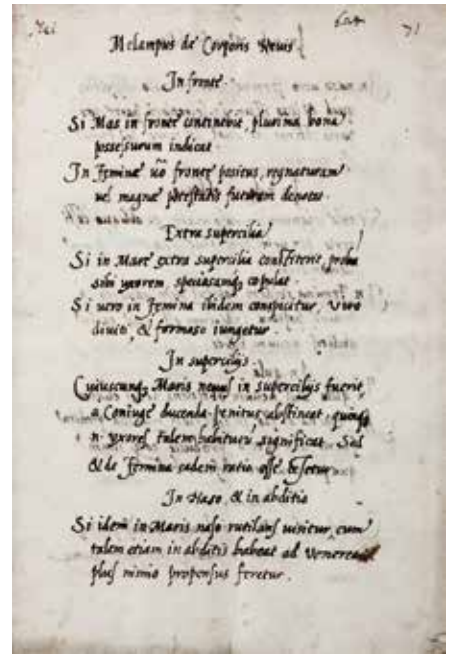 71
Melampus de Corporis Nevis
In fronte.
Si Mas in fronte continebit, plurima bona
possessurum indicat
In Femina uo fronte positus, regnaturam
uel magnae potestatis futuram denotat.
Extra supercilia
Si in Mare extra supercilia constiterit, proba
sibi uxorem, speciosamq copulat.
Si uero in Femina ibidem conspicitur, Viro
diuiti, & formoso iungetur.
In supercilijs.
Cuiuscunq Maris neuus in supercilijs fuerit,
a Coniuge ducenda penitus abstineat, quinq
n. uxores talem habiturū significat. Sed
& de Femina eadem ratio esse
In Naso, & in abditio
Si idem in Maris naso rutilans uisitur, cum
talem etiam in abditis habeat ad Venerea
plus nimio propensus feretur.